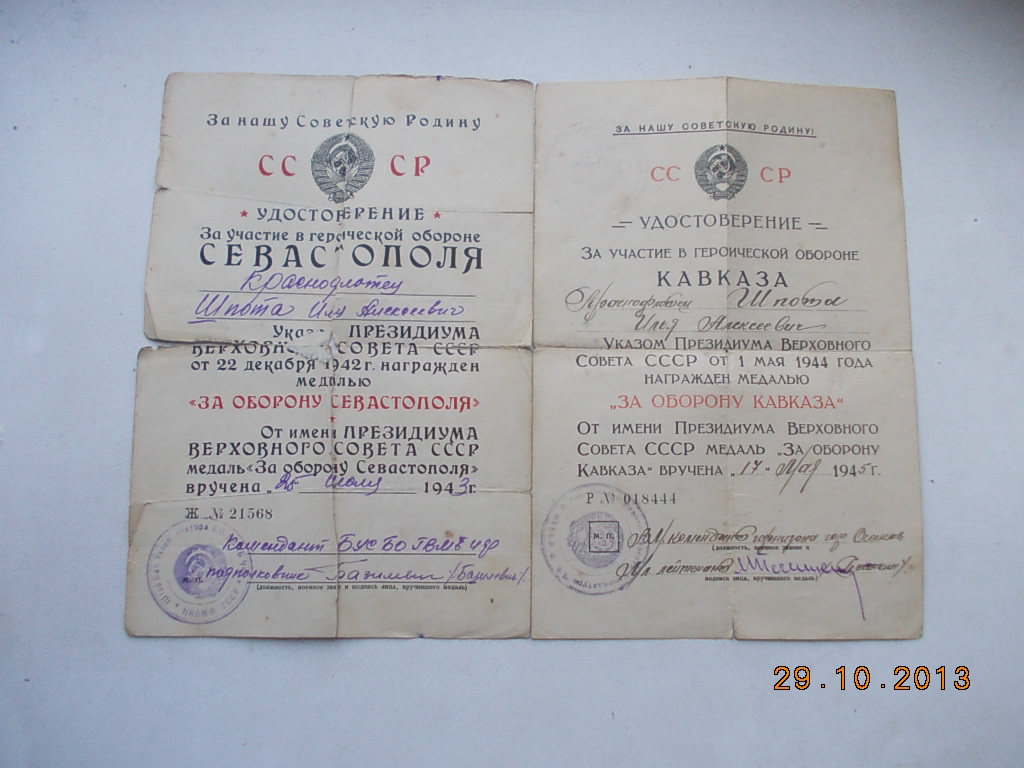 За нашу Советскую Родину
СС СР
УДОСТОВЕРЕНИЕ
За участие в героической обороне
СЕВАСТОПОЛЯ
Краснофлотец
Шпота Илья Алексеевич
Указом ПРЕЗИДИУМА
ВЕРХОВНОГО СОВЕТА СССР
от 22 декабря 1942 г. награжден
медалью
«ЗА ОБОРОНУ СЕВАСТОПОЛЯ»
От имени ПРЕЗИДИУМА
ВЕРХОВНОГО СОВЕТА СССР
медаль «За оборону Севастополя»
вручена „25 июля 1943 г.
Ж № 21568
М. П.
Комендант
подполковник
(должность, военное звание и подпись лица, вручившего медаль)
ЗА НАШУ СОВЕТСКУЮ РОДИНУ!
СС СР
УДОСТОВЕРЕНИЕ
ЗА УЧАСТИЕ В ГЕРОИЧЕСКОЙ ОБОРОНЕ
КАВКАЗА
Краснофлотец Шпота
Илья Алексеевич
УКАЗОМ ПРЕЗИДИУМА ВЕРХОВНОГО
СОВЕТА СССР ОТ 1 МАЯ 1944 ГОДА
НАГРАЖДЕН МЕДАЛЬЮ
„ЗА ОБОРОНУ КАВКАЗА“
ОТ ИМЕНИ ПРЕЗИДИУМА ВЕРХОВНОГО
СОВЕТА СССР МЕДАЛЬ „ЗА ОБОРОНУ
КАВКАЗА“ ВРУЧЕНА „17“ Мая 1945 г.
Р № 018444
М. П.
гарнизона гор
(должность, военное звание и
лейтенант
подпись лица, вручившего медаль)
29.10.2013